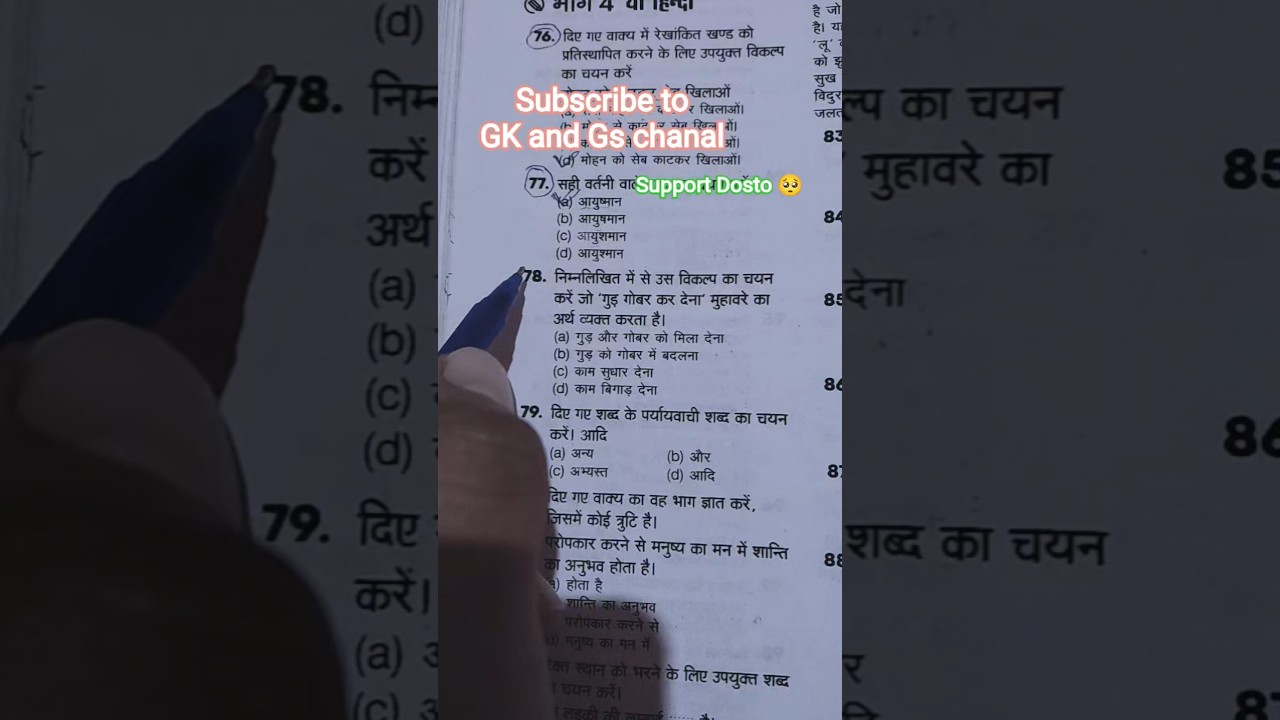 भाग 4
हिन्दी
76. दिए गए वाक्य में रेखांकित खण्ड को
प्रतिस्थापित करने के लिए उपयुक्त विकल्प
का चयन करें
खिलाओं
Subscribe to
GK and Gs chanal
खिलाओं।
(d) मोहन को सेब काटकर खिलाओं।
77. सही वर्तनी
Support Dosto 🥺
(a) आयुष्मान
(b) आयुषमान
(c) आयुंशमान
(d) आयुश्मान
78. निम्नलिखित में से उस विकल्प का चयन
करें जो 'गुड़ गोबर कर देना' मुहावरे का
अर्थ व्यक्त करता है।
(a) गुड़ और गोबर को मिला देना
(b) गुड़ को गोबर में बदलना
(c) काम सुधार देना
(d) काम बिगाड़ देना
79. दिए गए शब्द के पर्यायवाची शब्द का चयन
करें। आदि
(a) अन्य (b) और
(c) अभ्यस्त (d) आदि
दिए गए वाक्य का वह भाग ज्ञात करें,
जिसमें कोई त्रुटि है।
परोपकार करने से मनुष्य का मन में शान्ति
का अनुभव होता है।
होता है
शान्ति का अनुभव
परोपकार करने से
मनुष्य का मन में
स्थान को भरने के लिए उपयुक्त शब्द
चयन करें।
है जो
है।
'लू'
को
सुख
83
84
85
86
87
88